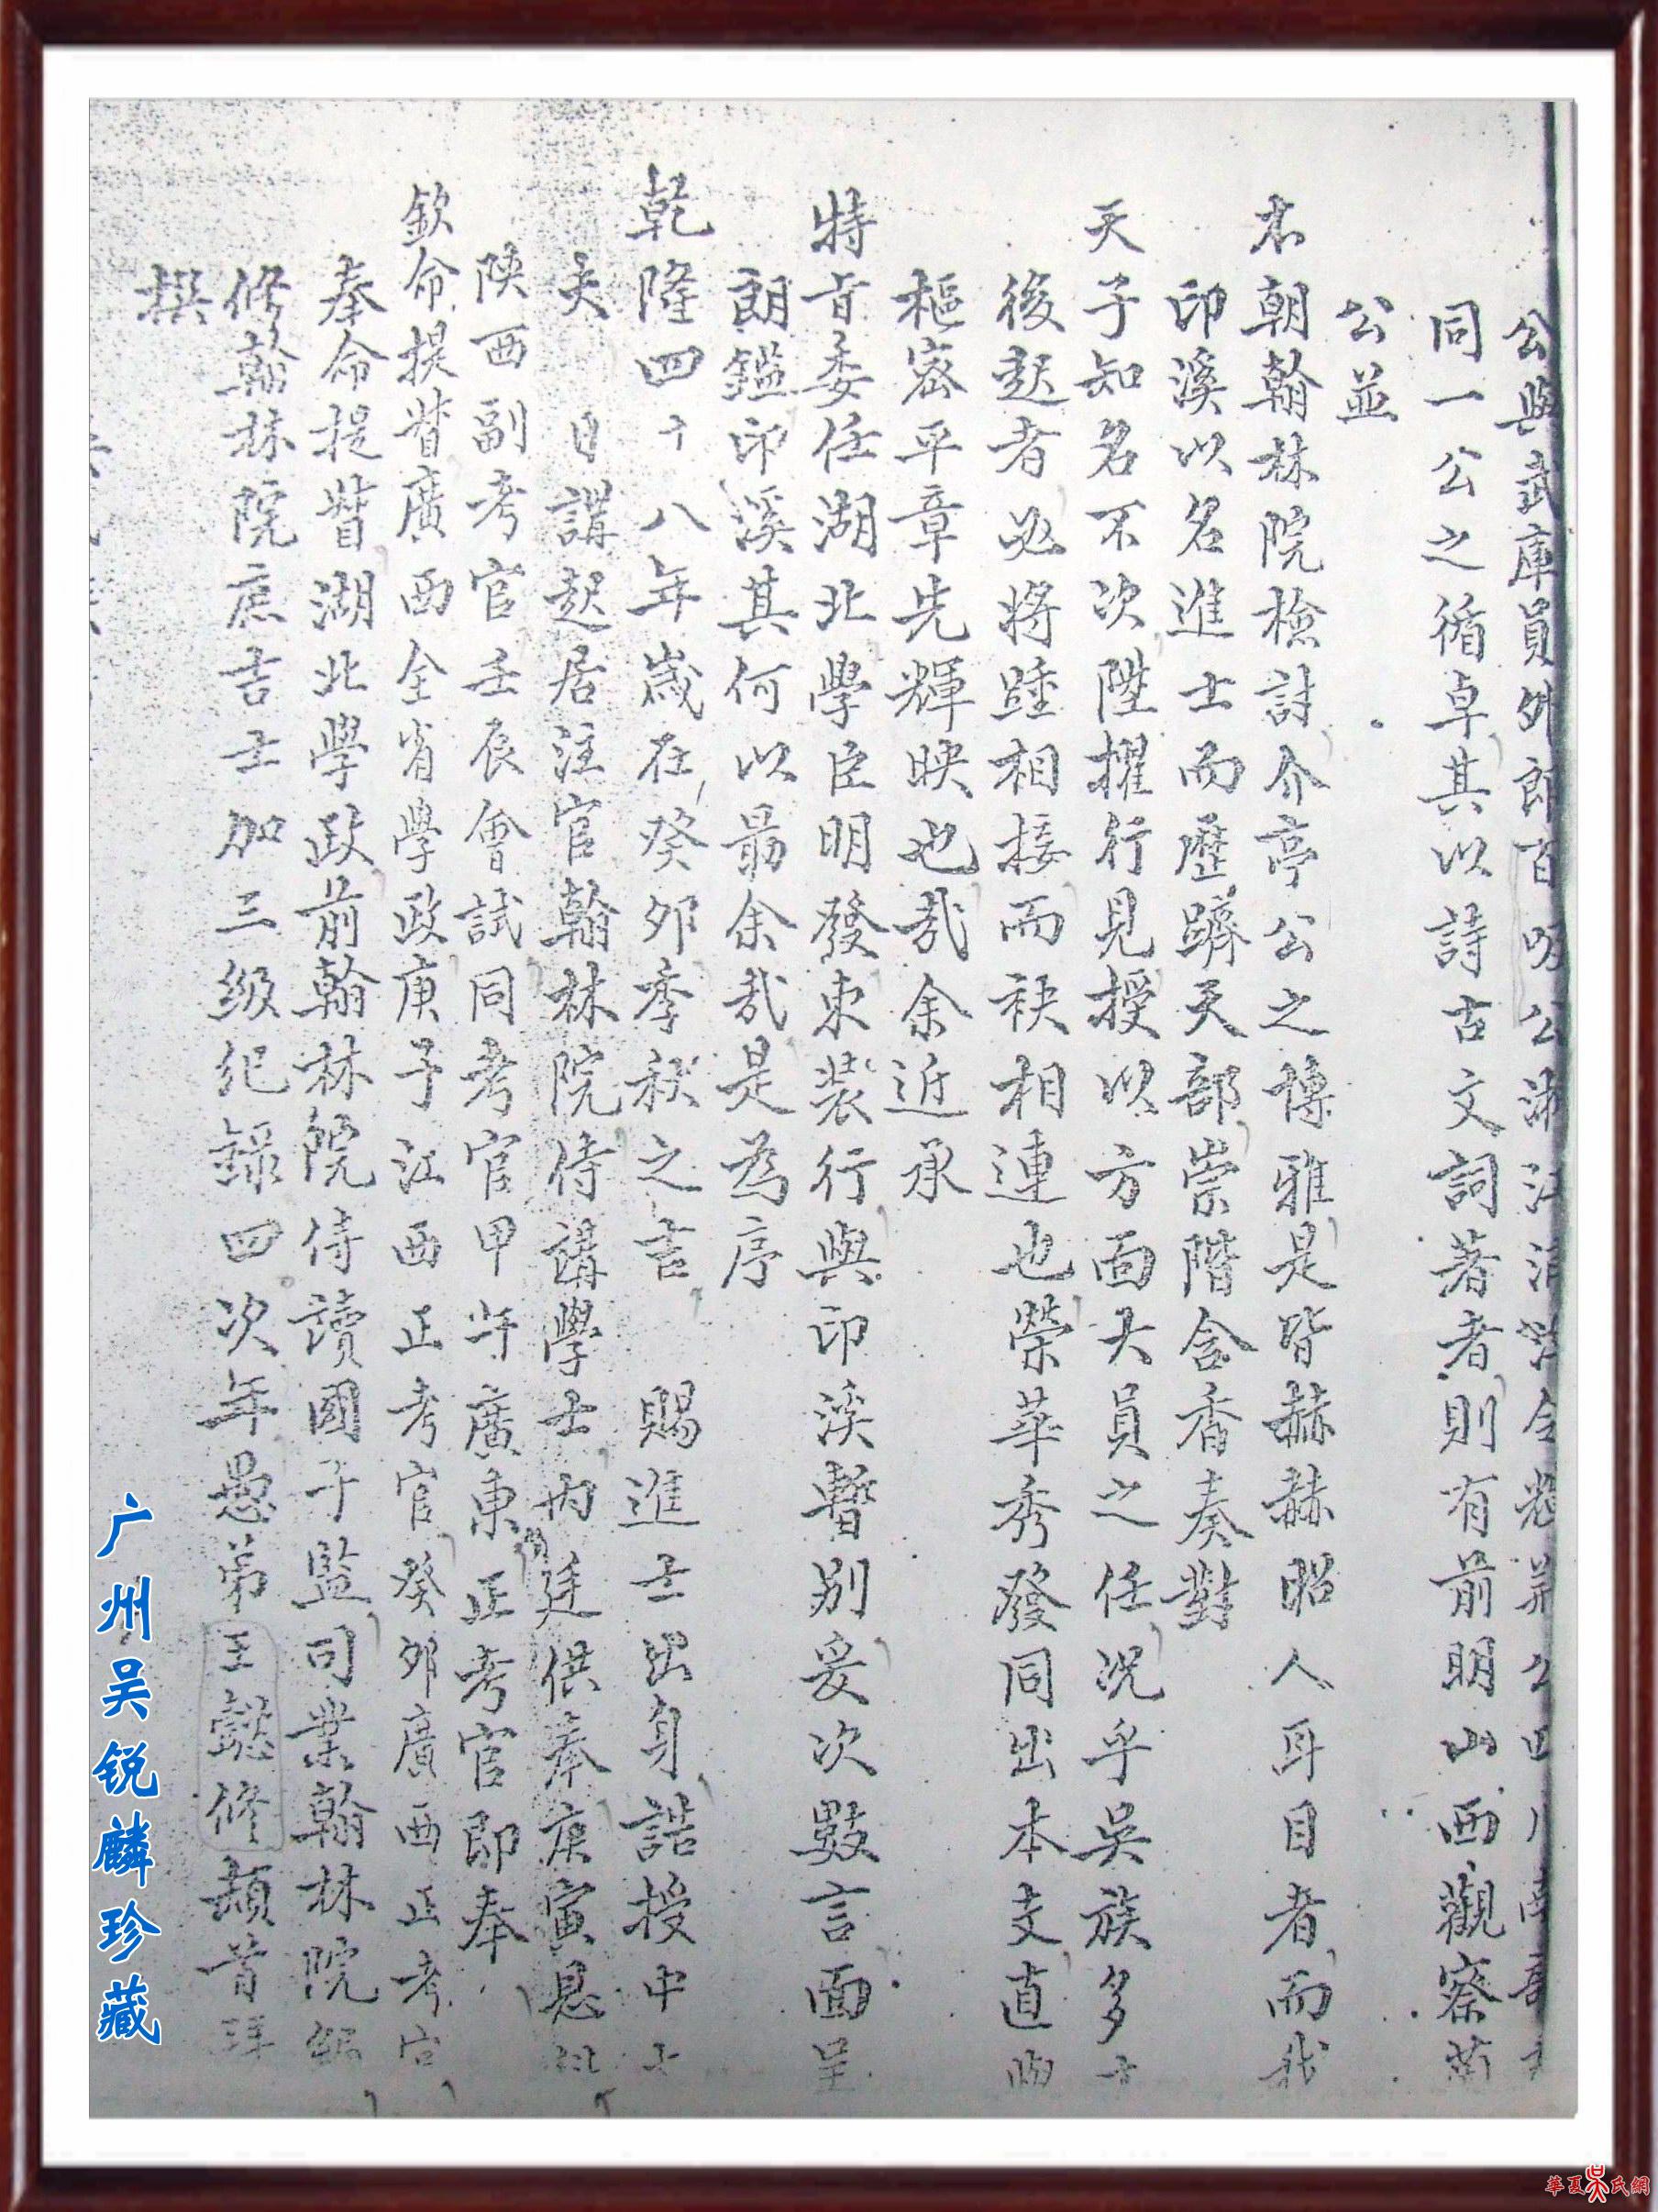 公與武庫員外郎百明公沛江
同一公之循卓其以詩古文詞著者則有前明山西觀察
公並
本朝翰林院檢討介亭公之博雅是皆赫赫昭人耳目者而我
印溪以名進士而歷躋天部崇階含香奏對
天子知名不次陞擢行見授以方面大員之任況乎吳族多士
後起者必將踵相接而袂相連也榮華秀發同出本支直與
樞密平章先輝映也哉余近承
特旨委任湖北學臣明發束裝行與印溪暫別妥次數言面呈
朗鑑印溪其何以勗余哉是為序
乾隆四十八年歲在癸卯季秋之吉 賜進士出身誥授中
夫 日講起居注官翰林院侍講學士內廷供奉庚寅恩科
陝西副考官壬辰會試同考官甲午廣東正考官即奉
欽命提督廣西全省學政庚子江西正考官癸卯廣西正考官
奉命提督湖北學政前翰林院侍讀國子監司業翰林院編
修翰林院庶吉士加三級紀錄四次年愚弟王懿修頓首拜
撰
广州吴锐麟珍藏
華夏吳氏網